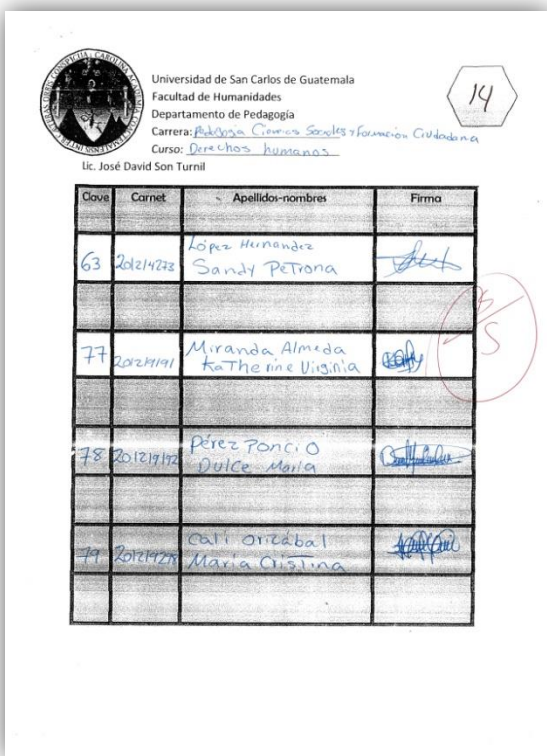 Universidad de San Carlos de Guatemala
Facultad de Humanidades
Departamento de Pedagogía
Carrera: Pedagogía Ciencias Sociales y Formación Ciudadana
Curso: Derechos humanos
Lic. José David Son Turnil
14
Clave Carnet Apellidos-nombres Firma
López Hernandez
63 201214273 Sandy Petrona
77 201219191 Miranda Almeda
Katherine Virginia
5
78 201219192 Pérez Poncio
Dulce María
Cali Oricabal
79 María Cristina